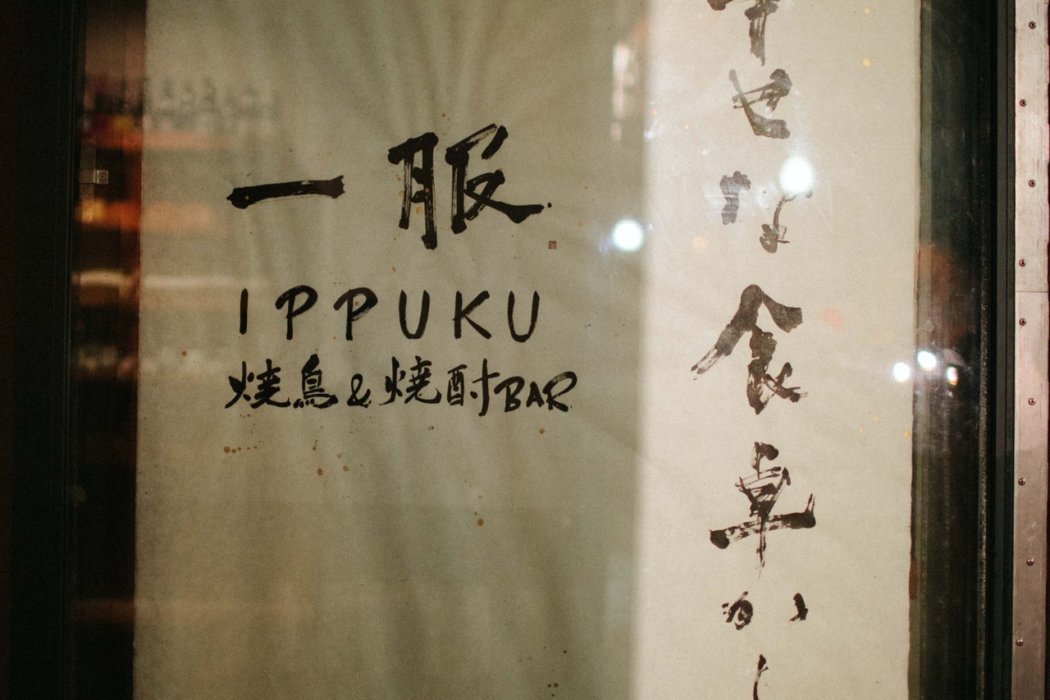 一服
IPPUKU
焼鳥&焼酎BAR
幸せな食卓か